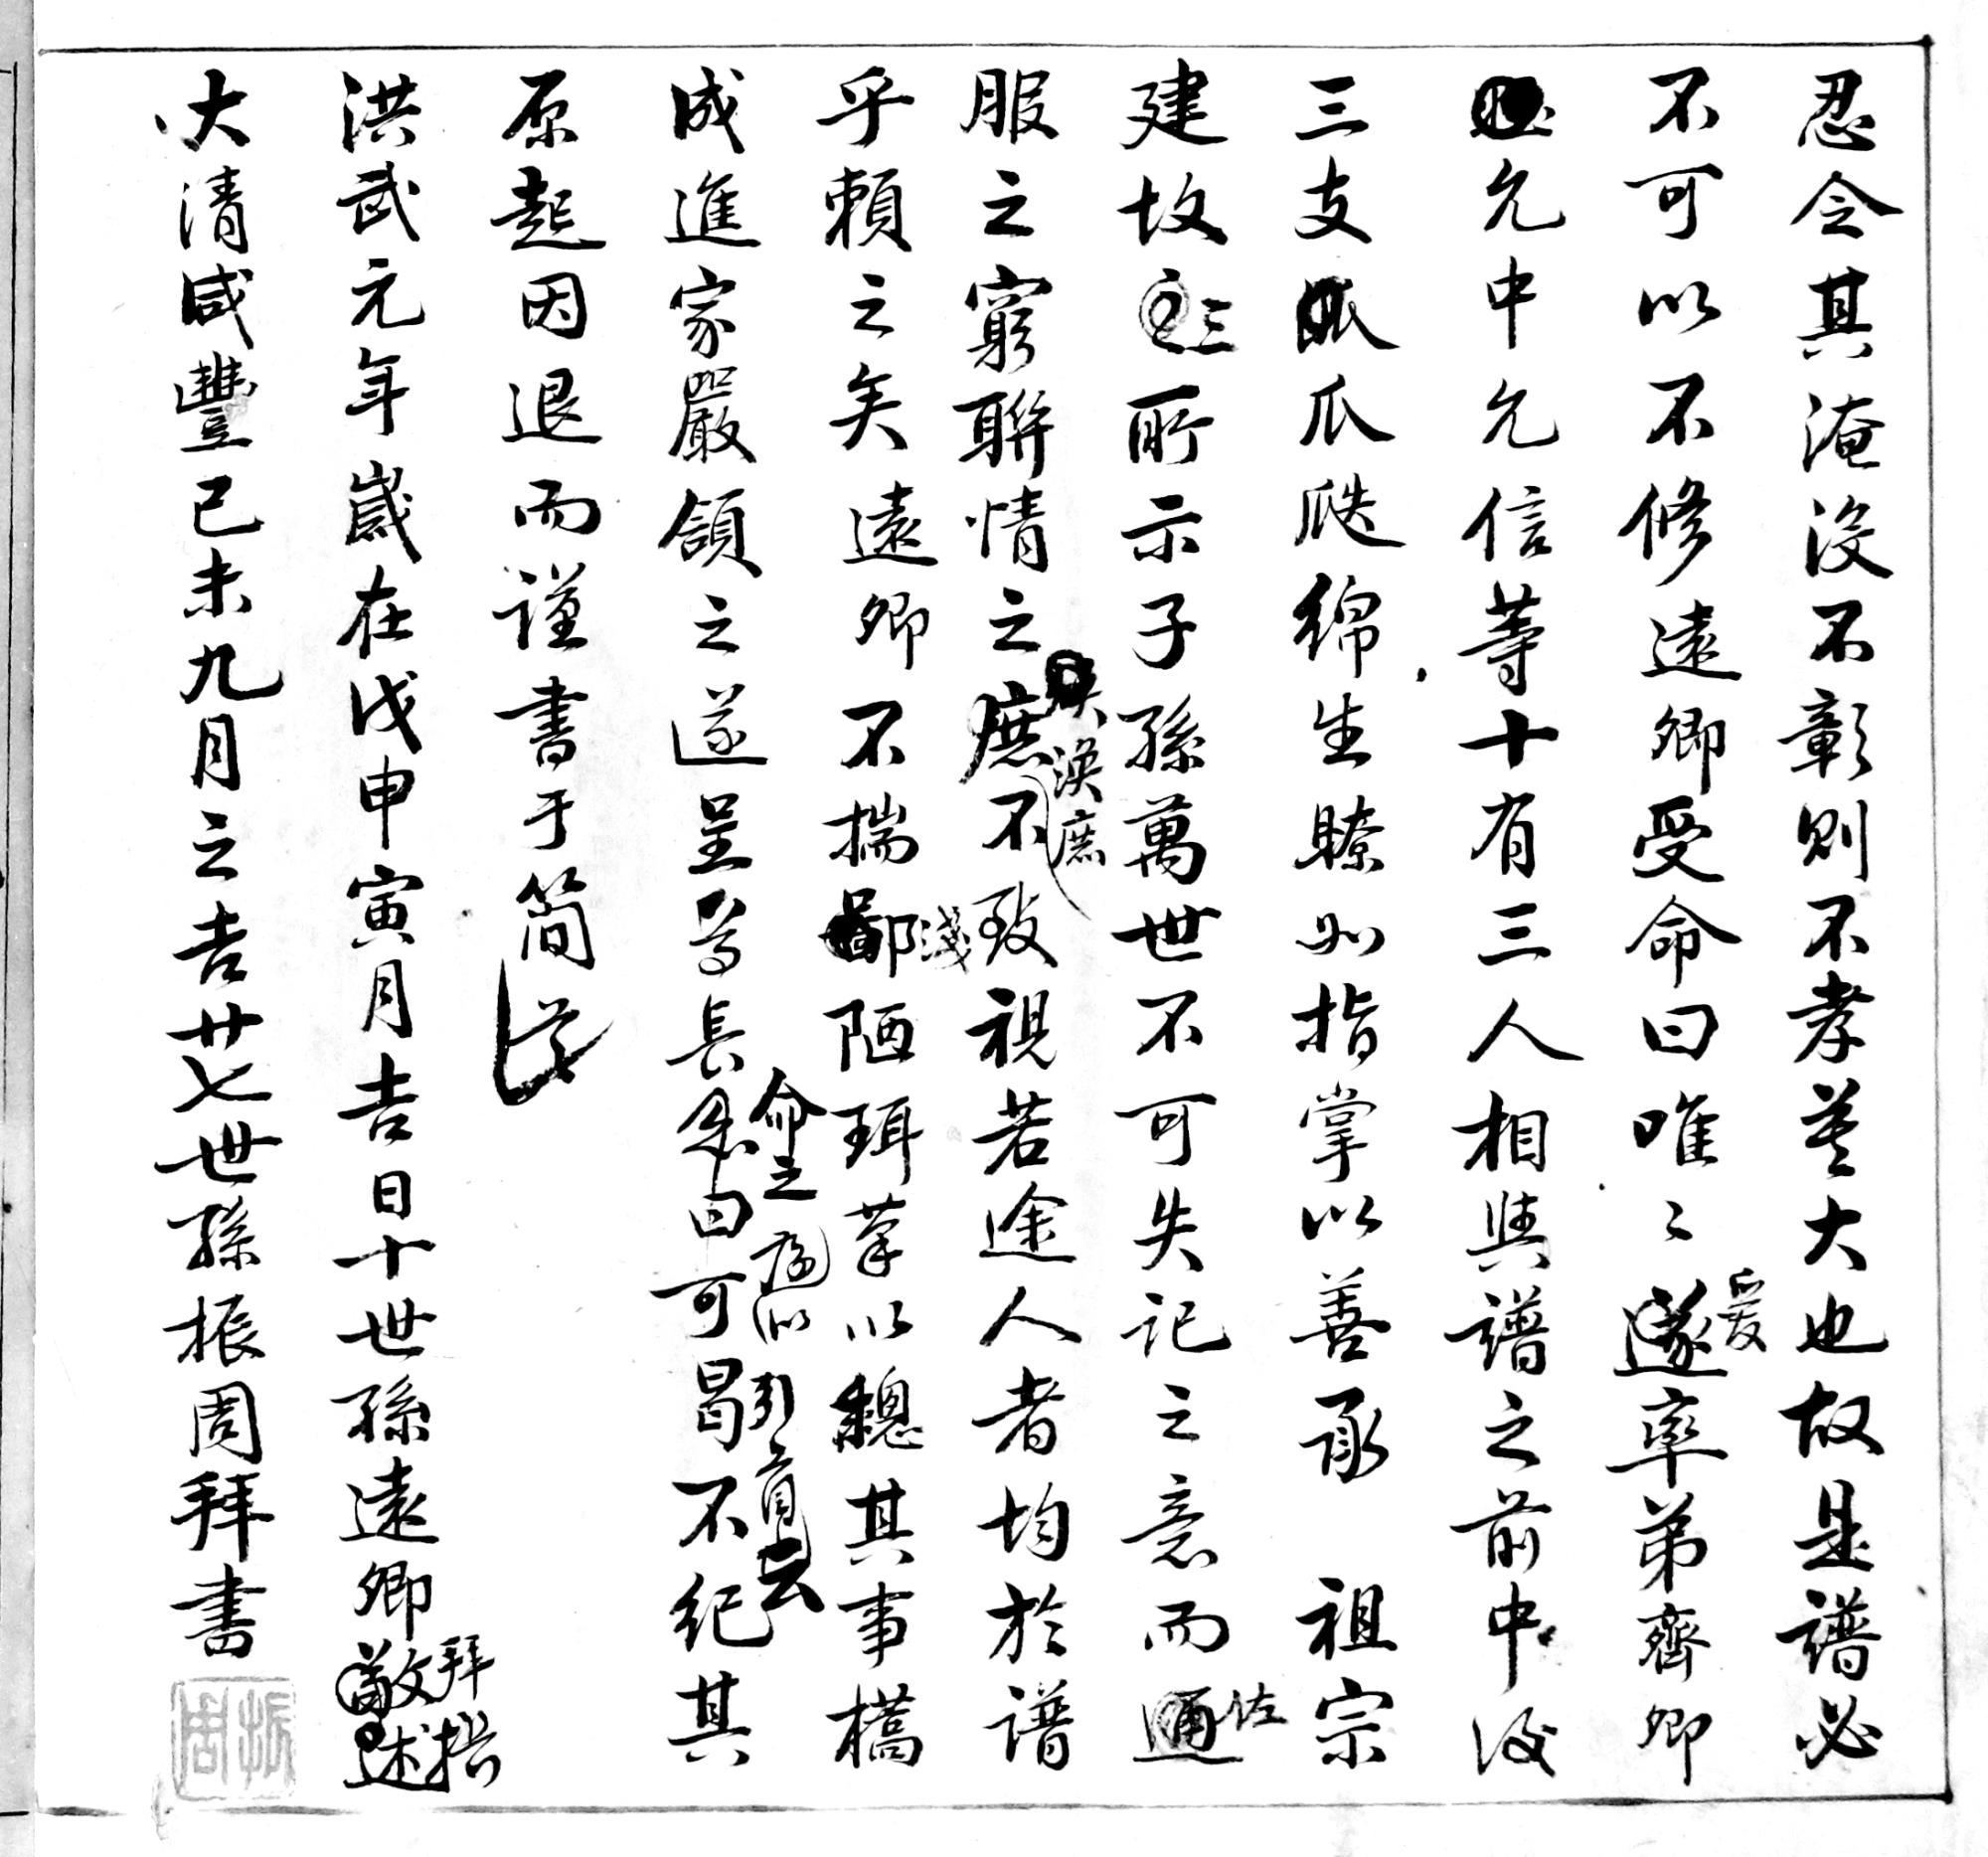 忍令其淹沒不彰則不孝莫大也故是譜必
不可以不修遠卿受命曰唯〻遂爰率弟齊卿
允中允信等十有三人相與譜之前中後
三支瓜瓞綿生瞭如指掌以善承 祖宗
建故三所示子孫萬世不可失記之意而通佐
服之窮聯情之渙庶不致視若途人者均於譜
乎賴之矣遠卿不揣鄙淺陋珥筆以總其事樁
成進家嚴頷之遂呈尊長命之曰可曷不紀其
原起因退而謹書于簡
洪武元年歲在戊申寅月吉日十世孫遠卿拜撰敬述
大清咸豐己未九月之吉廿七世孫振周拜書
振周